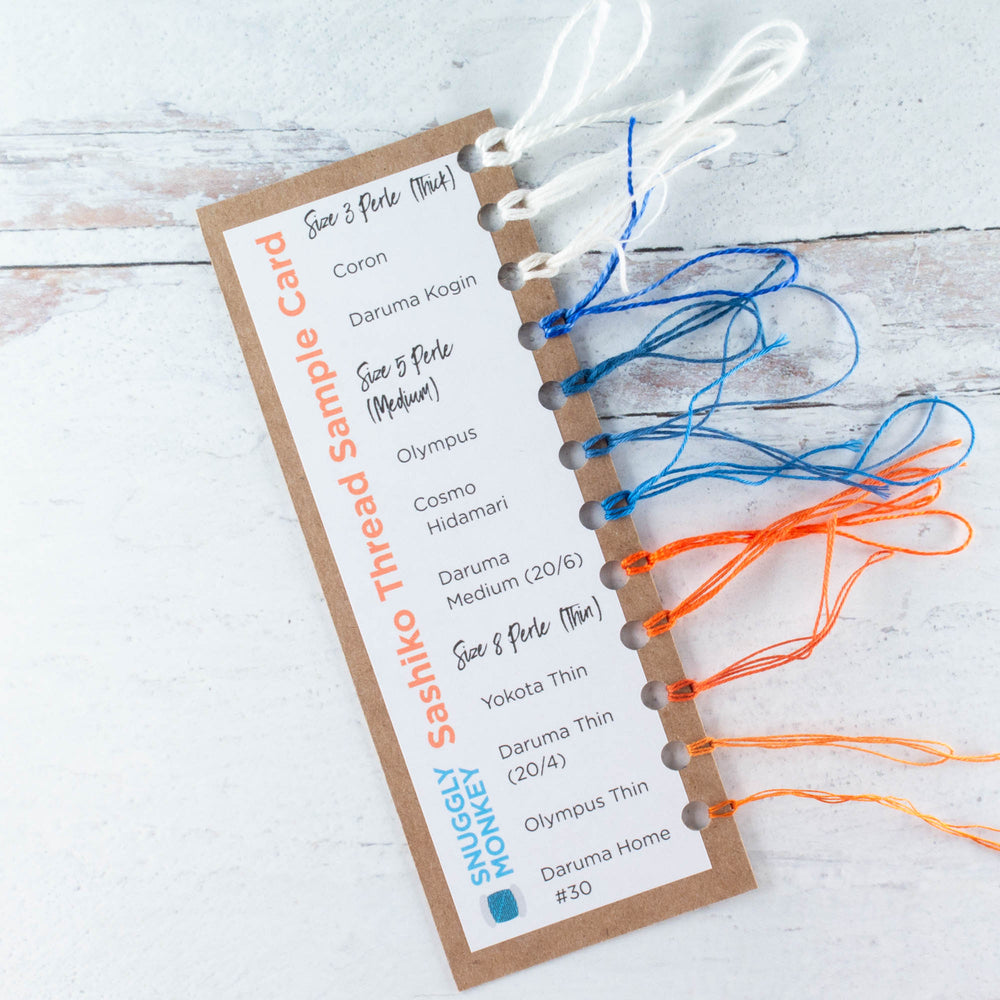 Sashiko Thread Sample Card
Size 3 Perle (Thick)
Coron
Daruma Kogin
Size 5 Perle
(Medium)
Olympus
Cosmo
Hidamari
Daruma
Medium (20/6)
Size 8 Perle (Thin)
Yokota Thin
Daruma Thin
(20/4)
Olympus Thin
Daruma Home
#30
SNUGGLY
MONKEY